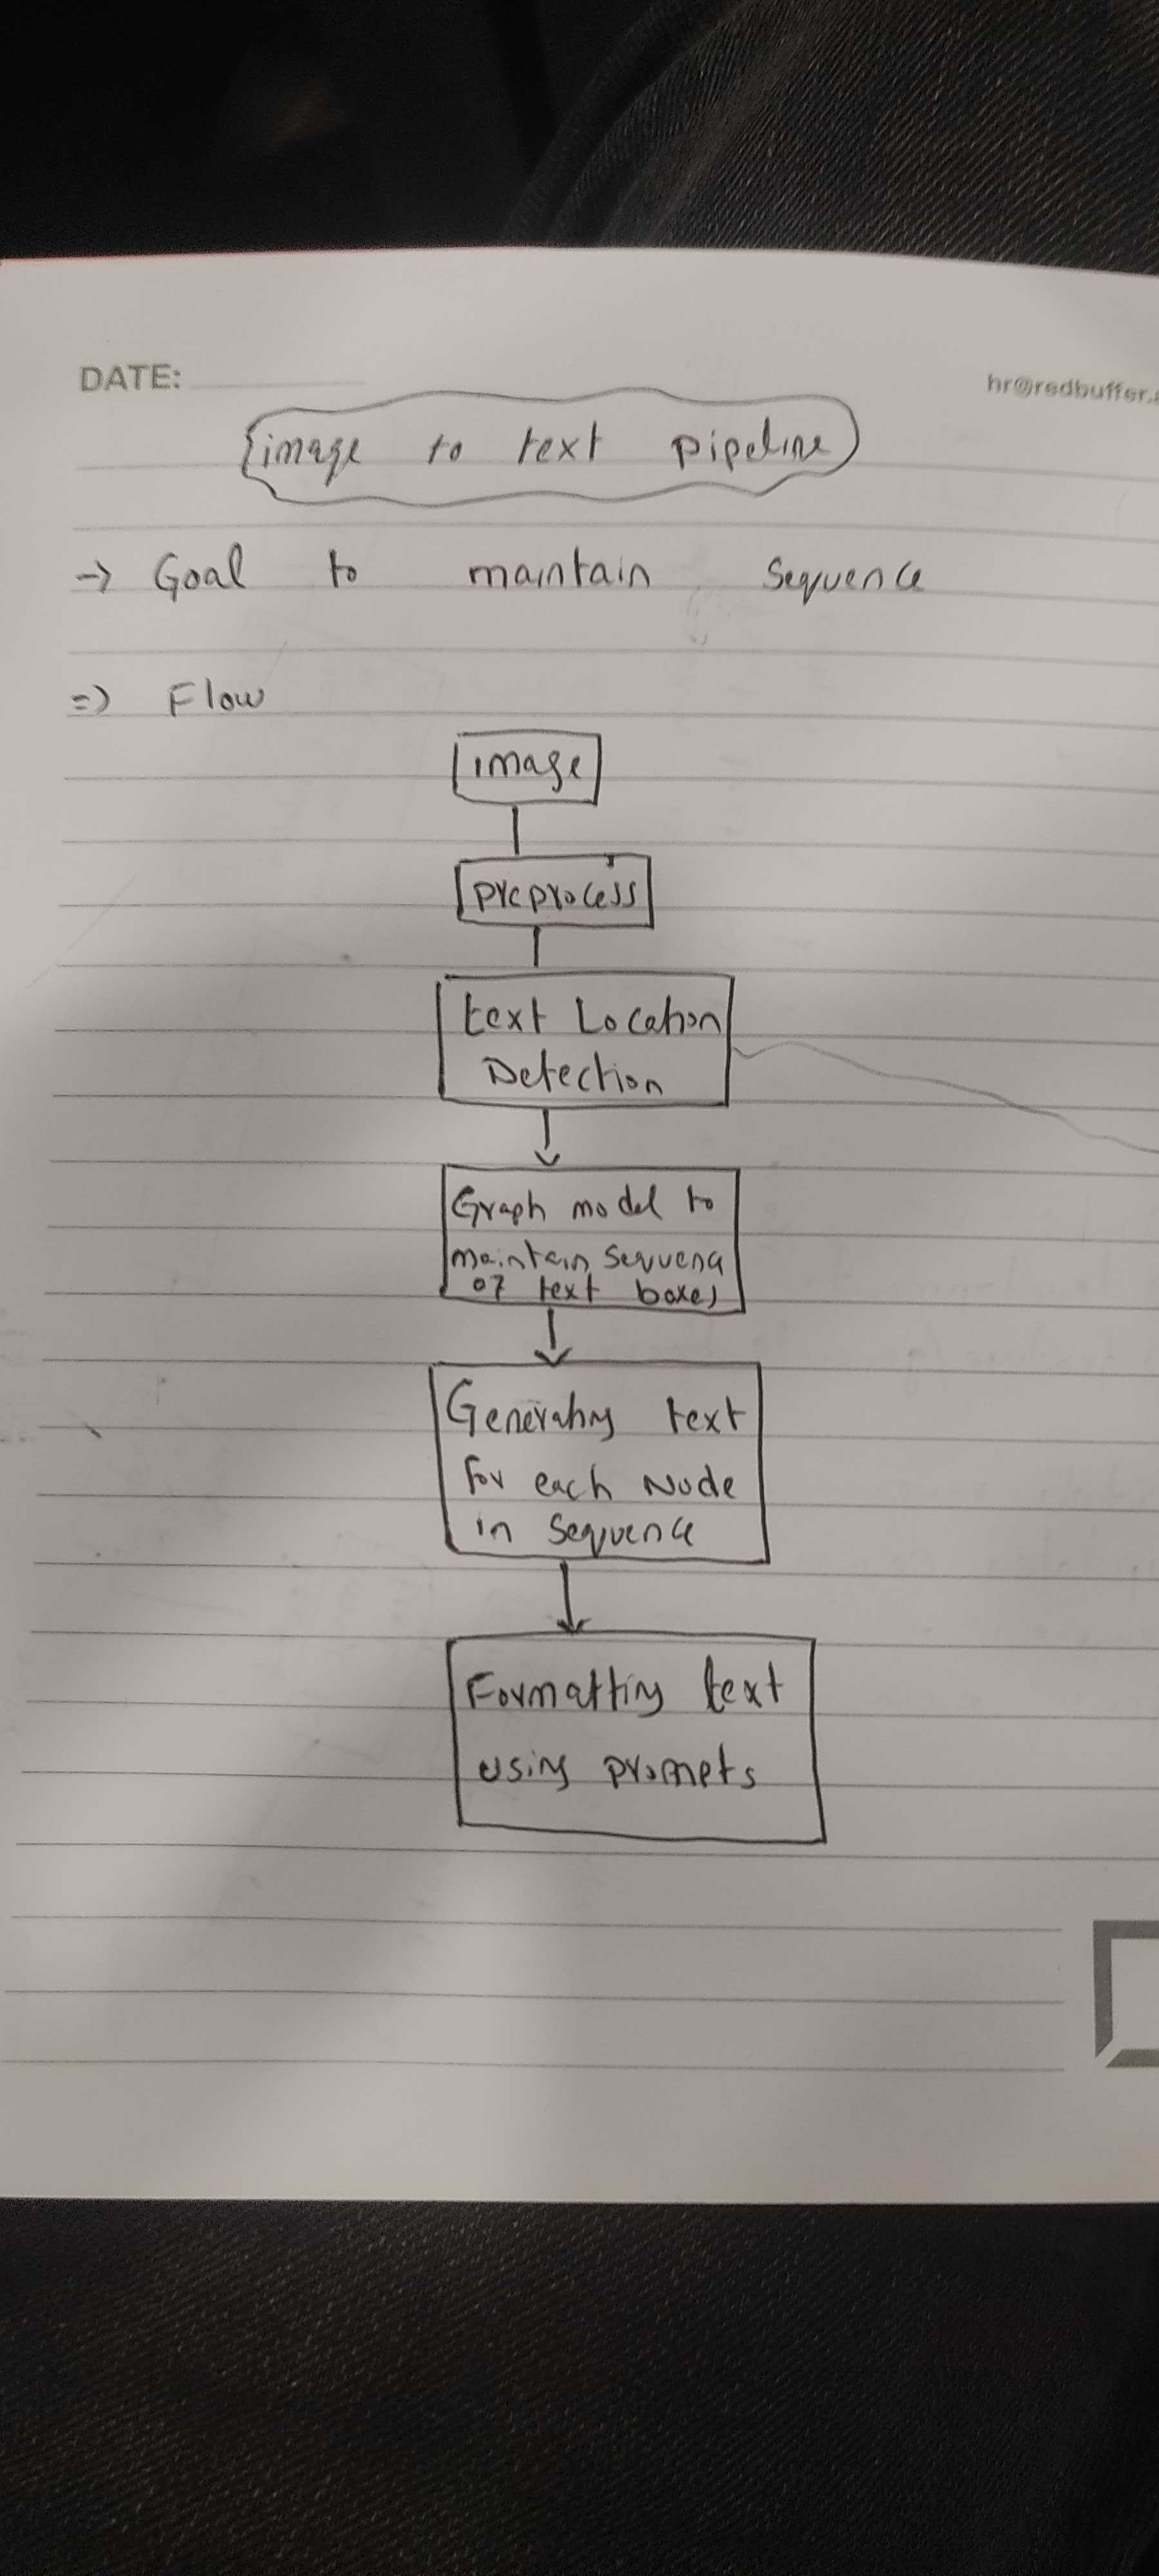 DATE:
hr@redbuffer.
image to text pipeline
→ Goal to maintain sequence
⇒ Flow
image
preprocess
text Location
Detection
Graph model to
maintain sequence
of text boxes
Generating text
for each Node
in sequence
Formatting text
using prompts